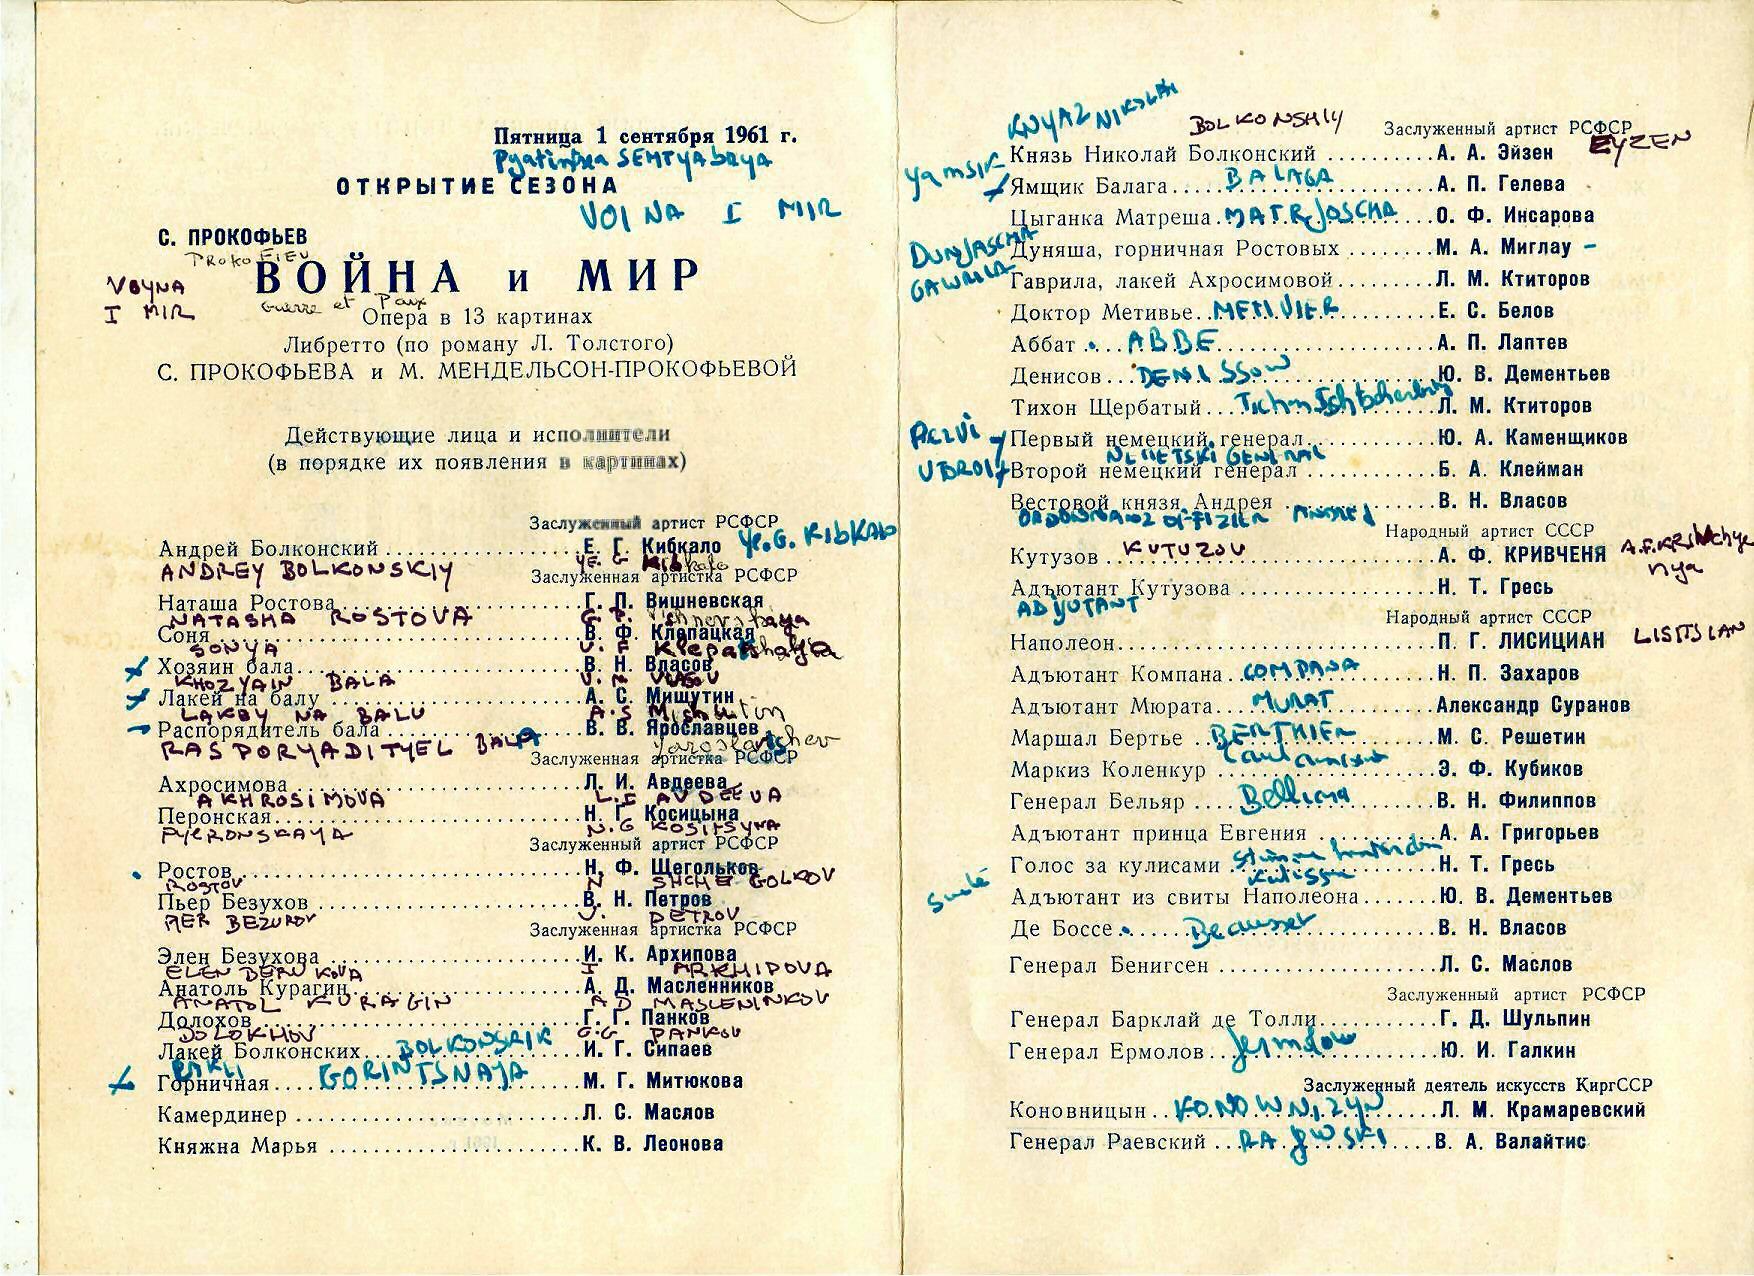 Пятница 1 сентября 1961 г.
Pyatintsa SEMTYABRYA
ОТКРЫТИЕ СЕЗОНА
VOINA I MIR
С. ПРОКОФЬЕВ
PROKOFIEV
ВОЙНА и МИР
VOYNA
I MIR
Guerre et Paix
Опера в 13 картинах
Либретто (по роману Л. Толстого)
С. ПРОКОФЬЕВА и М. МЕНДЕЛЬСОН-ПРОКОФЬЕВОЙ
Действующие лица и исполнители
(в порядке их появления в картинах)
Заслуженный артист РСФСР
Андрей Болконский Е. Г. Кибкало Ye. G. KIBKALO
ANDREY BOLKONSKIY YE. G Kibkalo
Заслуженная артистка РСФСР
Наташа Ростова Г. П. Вишневская
NATASHA ROSTOVA G. P. Vishnevskaya
Соня В. Ф. Клепацкая
SONYA V. F Klepatskaya
Хозяин бала В. Н. Власов
KHOZYAIN BALA V. N VLASOV
Лакей на балу А. С. Мишутин
LAKEY NA BALU A. S Mishutin
Распорядитель бала В. В. Ярославцев
RASPORYADITYEL BALA Yaroslavtshev
Заслуженная артистка РСФСР
Ахросимова Л. И. Авдеева
AKHROSIMOVA L. I AVDEEVA
Перонская Н. Г. Косицына
PYERONSKAYA N. G KOSITSYNA
Заслуженный артист РСФСР
Ростов Н. Ф. Щегольков
ROSTOV N SHCHEGOLKOV
Пьер Безухов В. Н. Петров
PIER BEZUKOV V. PETROV
Заслуженная артистка РСФСР
Элен Безухова И. К. Архипова
ELEN I ARKHIPOVA
Анатоль Курагин А. Д. Масленников
ANATOL KURAGIN A D MASLENINKOV
Долохов Г. Г. Панков
DOLOKHOV G. G PANKOV
Лакей Болконских BOLKONSKIK И. Г. Сипаев
Горничная GORINTSNAJA М. Г. Митюкова
Камердинер Л. С. Маслов
Княжна Марья К. В. Леонова
KNYAZ NIKOLAI BOLKONSKIY Заслуженный артист РСФСР
Князь Николай Болконский А. А. Эйзен EYZEN
Yamsik Ямщик Балага BALAGA А. П. Гелева
Цыганка Матреша MATRJOSCHA О. Ф. Инсарова
DUNJASCHA Дуняша, горничная Ростовых М. А. Миглау
GAWRILA Гаврила, лакей Ахросимовой Л. М. Ктиторов
Доктор Метивье METIVIER Е. С. Белов
Аббат ABBE А. П. Лаптев
Денисов DENISSOW Ю. В. Дементьев
Тихон Щербатый Л. М. Ктиторов
Первый немецкий генерал Ю. А. Каменщиков
NEMETSKI GENERAL
Второй немецкий генерал Б. А. Клейман
Вестовой князя Андрея В. Н. Власов
Народный артист СССР
Кутузов KUTUZOV А. Ф. КРИВЧЕНЯ
Адъютант Кутузова Н. Т. Гресь
ADJUTANT
Народный артист СССР
Наполеон П. Г. ЛИСИЦИАН LISITSIAN
Адъютант Компана COMPANA Н. П. Захаров
Адъютант Мюрата MURAT Александр Суранов
Маршал Бертье BERTHIER М. С. Решетин
Маркиз Коленкур Э. Ф. Кубиков
Генерал Бельяр В. Н. Филиппов
Адъютант принца Евгения А. А. Григорьев
Голос за кулисами Н. Т. Гресь
Адъютант из свиты Наполеона Ю. В. Дементьев
Де Боссе Beausset В. Н. Власов
Генерал Бенигсен Л. С. Маслов
Заслуженный артист РСФСР
Генерал Барклай де Толли Г. Д. Шульпин
Генерал Ермолов Jermolow Ю. И. Галкин
Заслуженный деятель искусств КиргССР
Коновницын KONOWNIZYN Л. М. Крамаревский
Генерал Раевский RAJEWSKI В. А. Валайтис